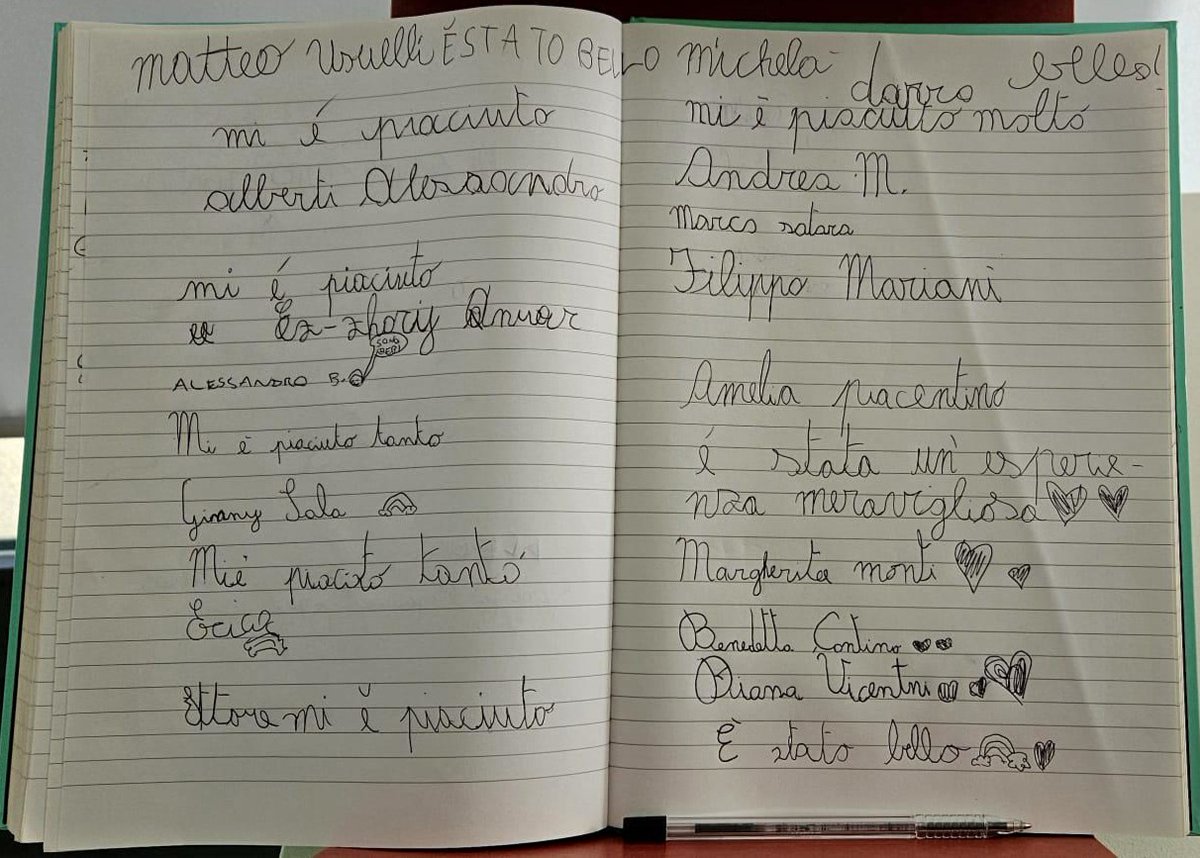 matteo Usuelli É STATO BELLO
mi é piaciuto
alberti Alessandro
mi é piaciuto
Ez-zhorij Anuar
SONO
ALESSANDRO B.
Mi è piaciuto tanto
Sala
Mi é piacito tantó
Erica
Ettore mi è piaciuto
michela
darro
mi è piaciuto moltó
Andrea M.
Marco satara
Filippo Mariani
Amelia piacentino
é stata un'esperie-
nza meravigliosa
Margherita monti
Benedetta Contino
Diana Vicentni
È stato bello